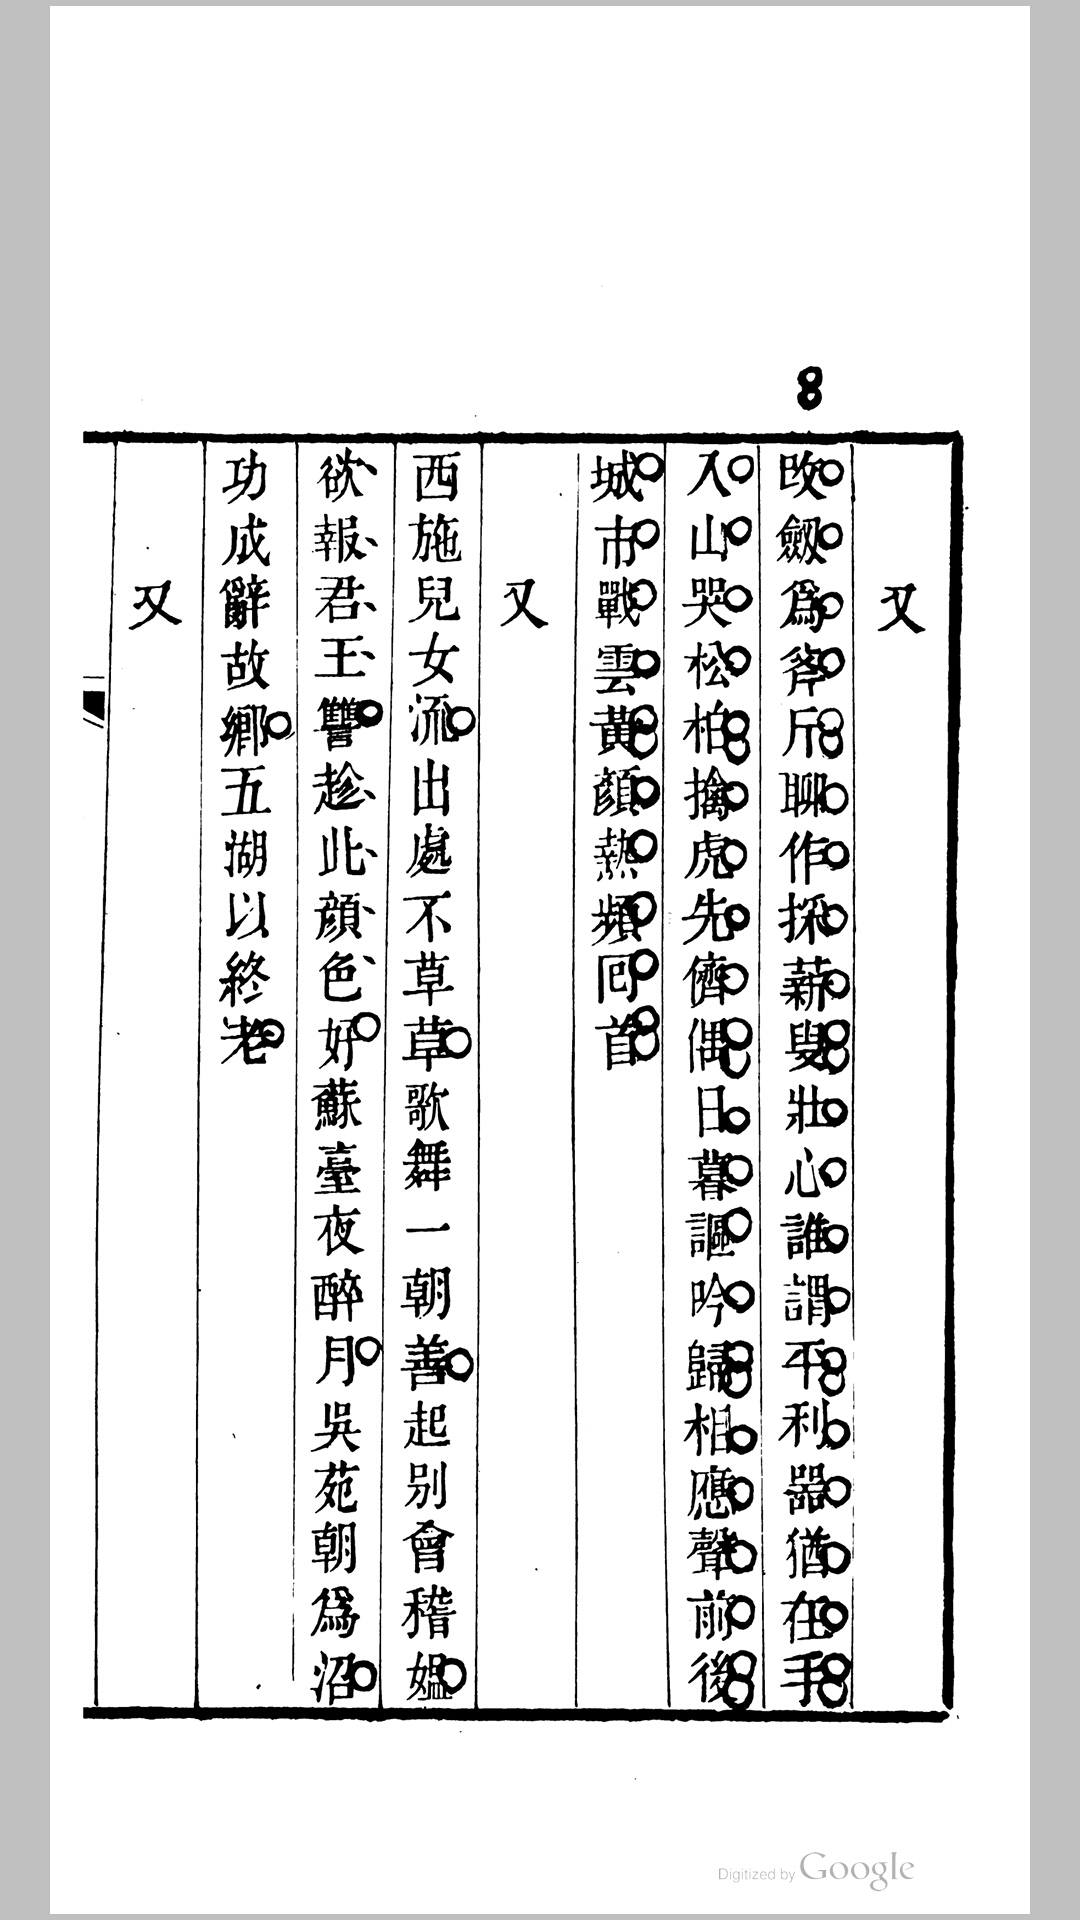 又
改劔爲斧斤聊作採薪叟壯心誰謂平利器猶在手
入山哭松柏擒虎先儕偶日暮謳吟歸相應聲前後
城市戰雲黃顏熱頻囘首
又
西施兒女流出處不草草歌舞一朝善起別會稽媼
欲報君王讐趁此顏色好蘇臺夜醉月吳苑朝爲沼
功成辭故鄉五湖以終老
又
Digitized by Google